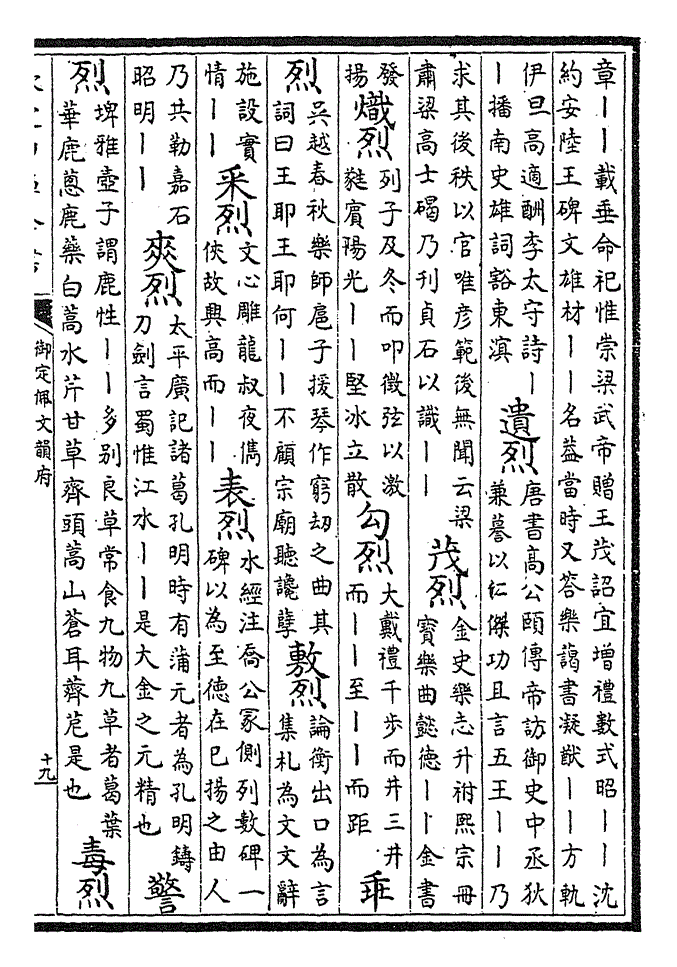 章丨丨載垂命祀惟崇梁武帝贈王茂詔宜增禮數式昭丨丨沈
約安陸王碑文雄材丨丨名蓋當時又答樂藹書凝猷丨丨方軌
伊旦高適酬李太守詩丨
丨播南史雄詞豁東溟
遺烈
唐書高公頤傳帝訪御史中丞狄
兼謩以仁傑功且言五王丨丨乃
求其後秩以官唯彦範後無聞云梁
肅梁高士碣乃刊貞石以識丨丨
茂烈
金史樂志升祔熙宗冊
寶樂曲懿德丨丨金書
發
揚
熾烈
列子及冬而叩徵弦以激
蕤賓陽光丨丨堅冰立散
勾烈
大戴禮千步而井三井
而丨丨至丨丨而距
乖
烈
吳越春秋樂師扈子援琴作窮刼之曲其
詞曰王耶王耶何丨丨不顧宗廟聽讒孽
敷烈
論衡出口為言
集札為文文辭
施設實
情丨丨
采烈
文心雕龍叔夜儁
俠故興高而丨丨
表烈
水經注喬公冢側列數碑一
碑以為至德在巳揚之由人
乃共勒嘉石
昭明丨丨
爽烈
太平廣記諸葛孔明時有蒲元者為孔明鑄
刀劍言蜀惟江水丨丨是大金之元精也
警
烈
埤雅壺子謂鹿性丨丨多别良草常食九物九草者葛葉
華鹿蔥鹿藥白蒿水芹甘草齊頭蒿山蒼耳薺苨是也
毒烈
御定佩文韻府
十九